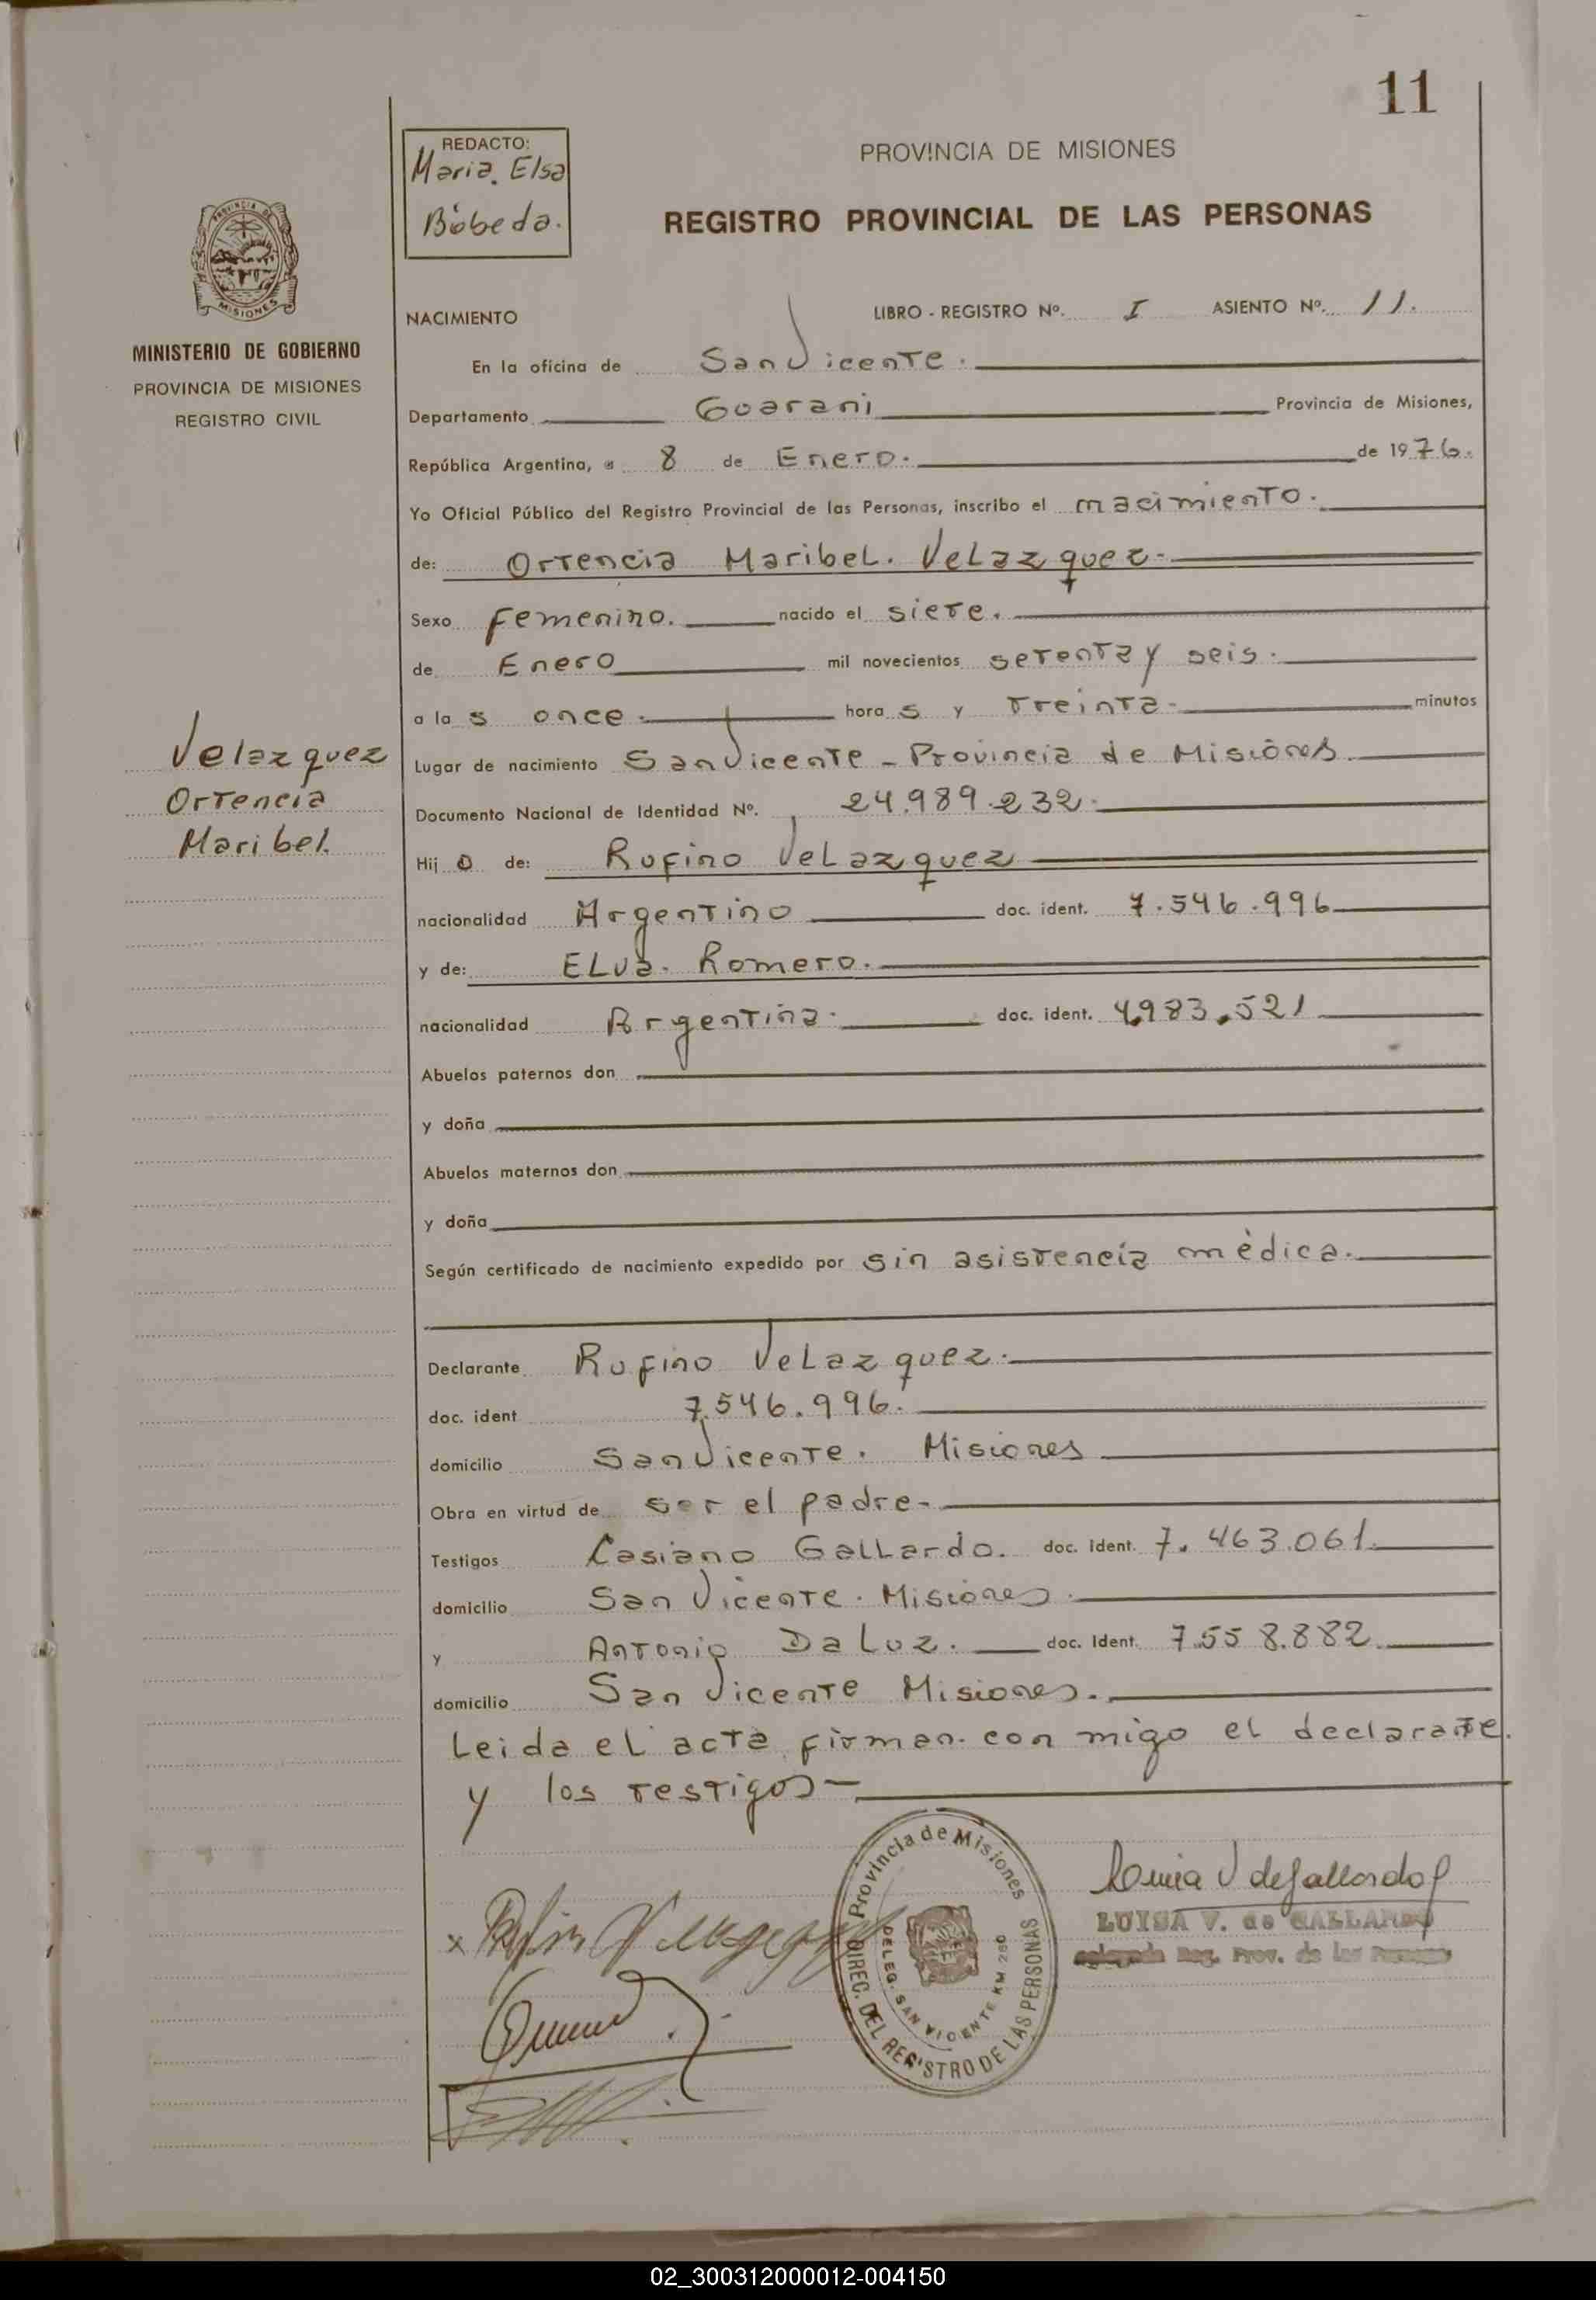 11
REDACTO:
Maria. Elsa
Bóbeda.
PROVINCIA DE MISIONES
REGISTRO PROVINCIAL DE LAS PERSONAS
PROVINCIA DE
MISIONES
MINISTERIO DE GOBIERNO
PROVINCIA DE MISIONES
REGISTRO CIVIL
NACIMIENTO LIBRO - REGISTRO Nº. I ASIENTO Nº. 11.
En la oficina de San Vicente.
Departamento Guarani Provincia de Misiones,
República Argentina, a 8 de Enero. de 1976.
Yo Oficial Público del Registro Provincial de las Personas, inscribo el nacimiento.
de: Ortencia Maribel. Velazquez-
Sexo Femenino. nacido el siete.
de Enero mil novecientos setenta y seis.
a la s once. hora s y treinta- minutos
Lugar de nacimiento San Vicente - Provincia de Misiones
Documento Nacional de Identidad Nº. 24.989.232.
Hij a de: Rufino Velazquez
nacionalidad Argentino doc. ident. 7.546.996
y de: Elva. Romero.
nacionalidad Argentina. doc. ident. 4.983.521
Abuelos paternos don
y doña
Abuelos maternos don
y doña
Según certificado de nacimiento expedido por sin asistencia mèdica.
Declarante Rufino Velazquez.
doc. ident 7.546.996.
domicilio San Vicente. Misiones
Obra en virtud de ser el padre-
Testigos Casiano Gallardo. doc. Ident. 7.463.061.
domicilio San Vicente. Misiones.
y Antonio Da Luz. doc. Ident. 7.558.882
domicilio San Vicente Misiones.
Leida el acta firman con migo el declarante.
y los testigos-
Velazquez
Ortencia
Maribel.
Provincia de Misiones
DIREC. DEL REGISTRO DE LAS PERSONAS
DELEG. SAN VICENTE KM 260
Luisa V de Gallardo
LUISA V. de GALLARDO
Reg. Prov. de las Personas
02_300312000012-004150